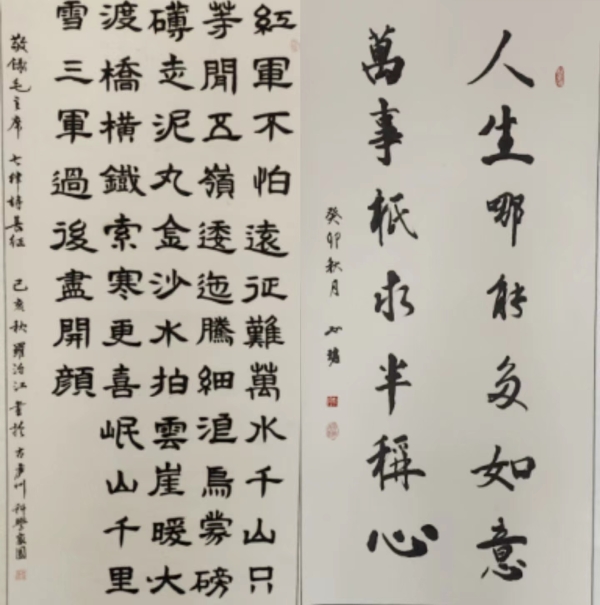 紅軍不怕遠征難萬水千山只
等閒五嶺逶迤騰細浪烏蒙磅
礴走泥丸金沙水拍雲崖暖大
渡橋橫鐵索寒更喜岷山千里
雪三軍過後盡開顏
敬錄毛主席 七律詩長征 己亥秋 羅治江書於古瀘州科學家園
人生哪能多如意
萬事祇求半稱心
癸卯秋月